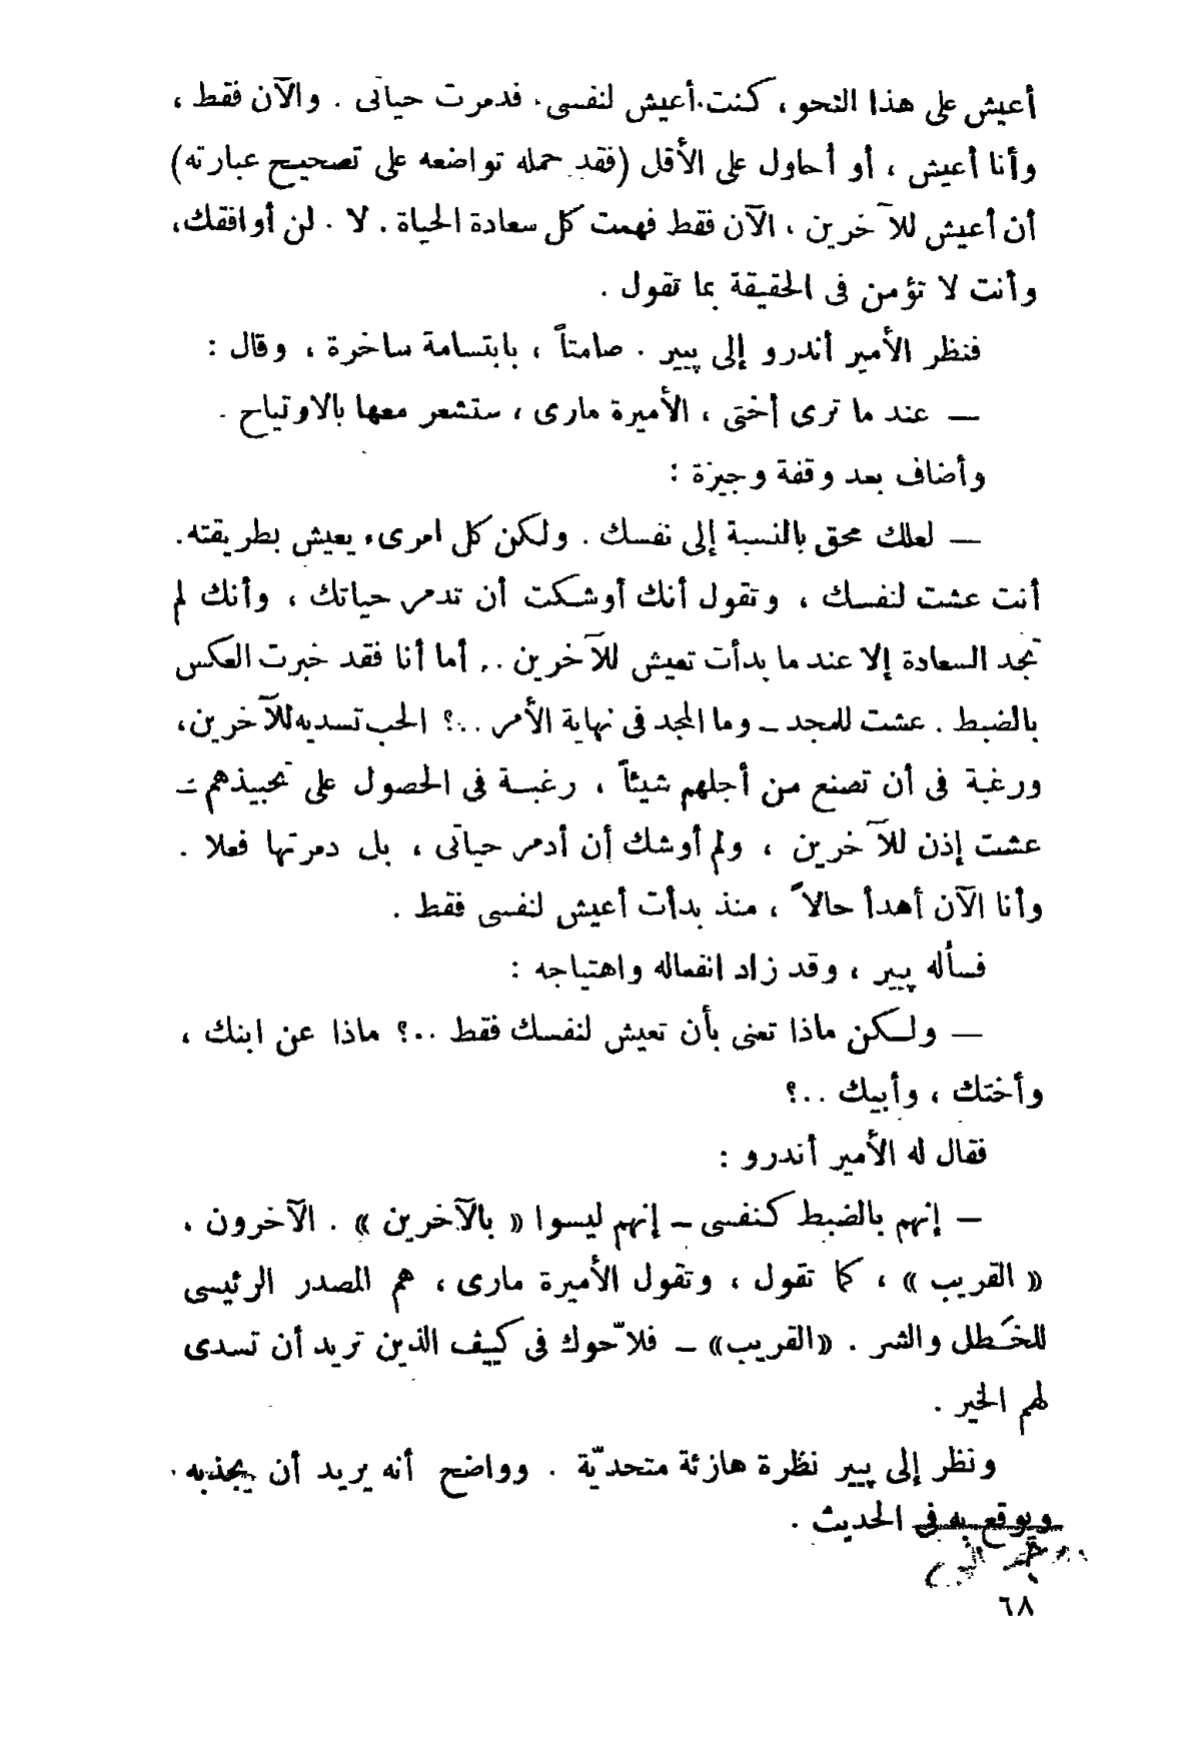 أعيش على هذا النحو ، كنت أعيش لنفسى . فدمرت حياتى . والآن فقط ،
وأنا أعيش ، أو أحاول على الأقل (فقد حمله تواضعه على تصحيح عبارته)
أن أعيش للآخرين ، الآن فقط فهمت كل سعادة الحياة . لا . لن أوافقك ،
وأنت لا تؤمن فى الحقيقة بما تقول .
فنظر الأمير أندرو إلى پيير . صامتاً ، بابتسامة ساخرة ، وقال :
— عند ما ترى أختى ، الأميرة مارى ، ستشعر معها بالاوتياح .
وأضاف بعد وقفة وجيزة :
— لعلك محق بالنسبة إلى نفسك . ولكن كل امرىء يعيش بطريقته .
أنت عشت لنفسك ، وتقول أنك أوشكت أن تدمر حياتك ، وأنك لم
تجد السعادة إلا عند ما بدأت تعيش للآخرين .. أما أنا فقد خبرت العكس
بالضبط . عشت للمجد – وما المجد فى نهاية الأمر ..؟ الحب تسديه للآخرين ،
ورغبة فى أن تصنع من أجلهم شيئاً ، رغبة فى الحصول على تحبيذهم –
عشت إذن للآخرين ، ولم أوشك أن أدمر حياتى ، بل دمرتها فعلا .
وأنا الآن أهدأ حالاً ، منذ بدأت أعيش لنفسى فقط .
فسأله پيير ، وقد زاد انفعاله واهتياجه :
— ولكن ماذا تعنى بأن تعيش لنفسك فقط ..؟ ماذا عن ابنك ،
وأختك ، وأبيك ..؟
فقال له الأمير أندرو :
— إنهم بالضبط كنفسى – إنهم ليسوا « بالآخرين » . الآخرون ،
« القريب » ، كما تقول ، وتقول الأميرة مارى ، هم المصدر الرئيسى
للخَطل والشر . «القريب» – فلاّحوك فى كييف الذين تريد أن تسدى
لهم الخير .
ونظر إلى پيير نظرة هازئة متحديّة . وواضح أنه يريد أن يجذبه .
ويوقع به فى الحديث .
٦٨